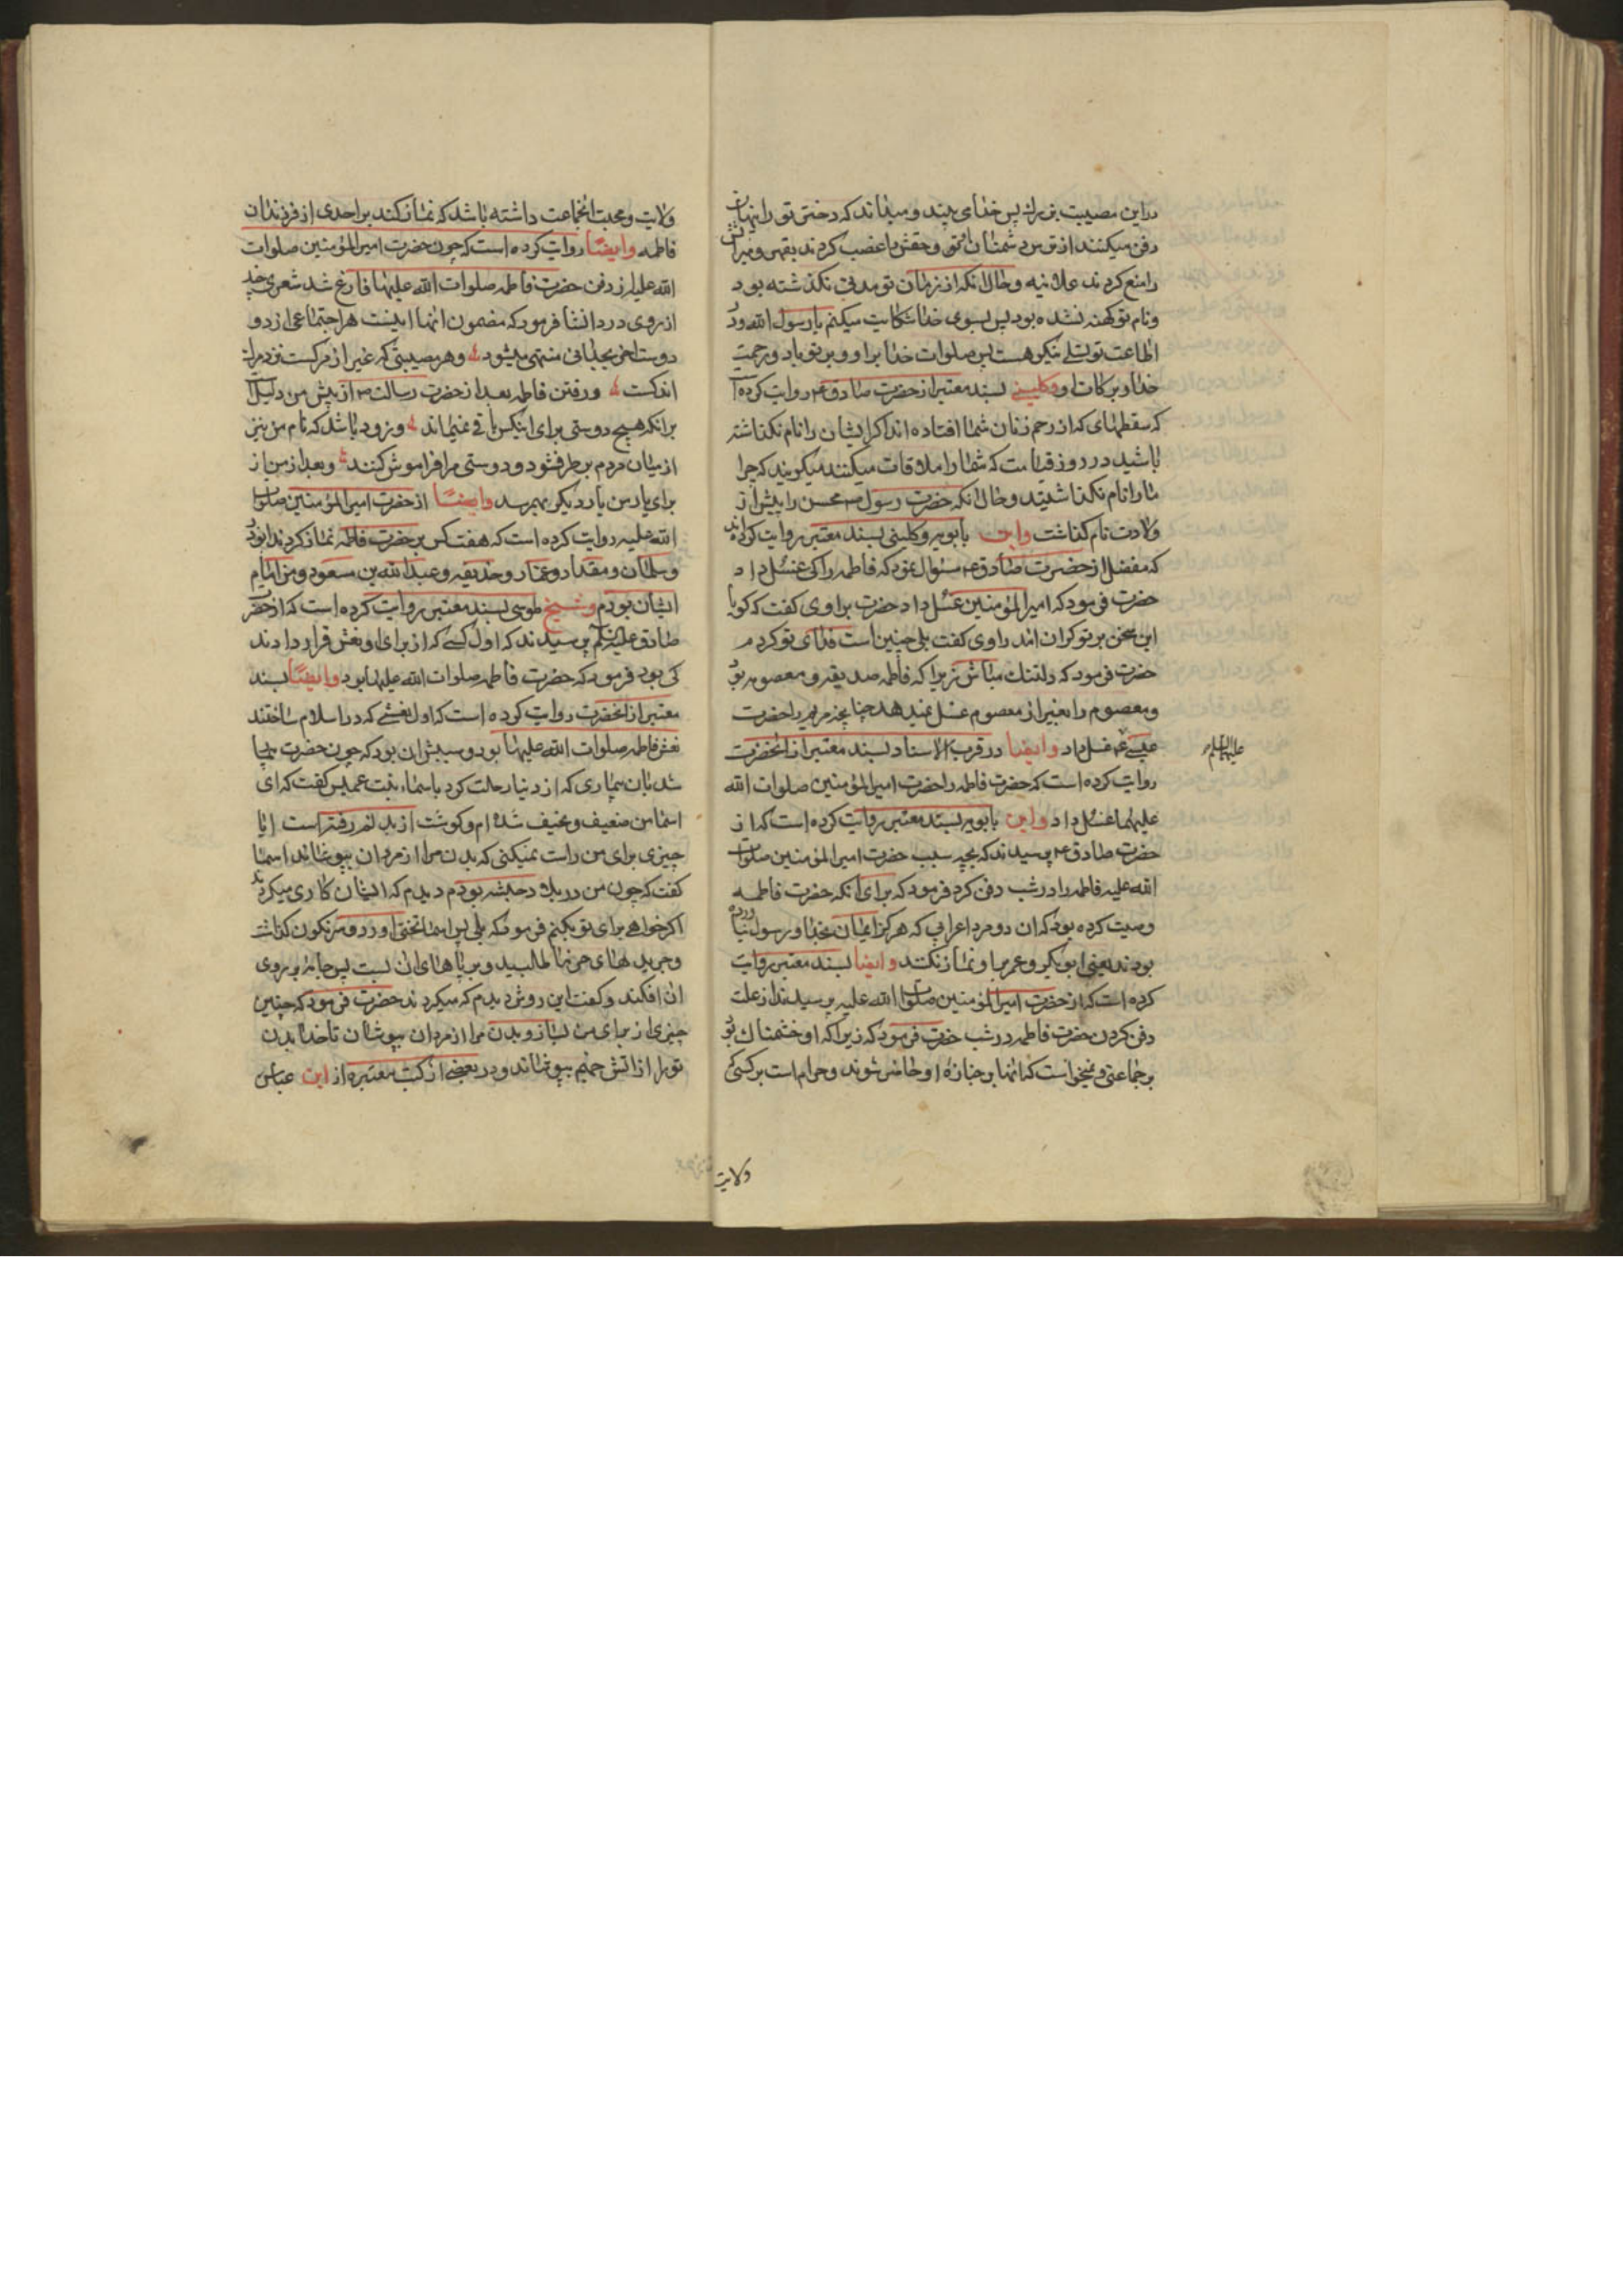 دراین مصیبت بزرك پس خدای بیند و میداند که دختر تو را پنهان
دفن میکنند از ترس دشمنان امتی و حقش را غصب کردند بقهر و میراثش
را منع کردند علانیه و حال انکه از زمان تو مدتی نکذشته بود
ونام تو کهنه نشده بود پس بسوی خدا شکایت میکنم یا رسول الله ودر
اطاعت تو تسلی نیکو هست پس صلوات خدا بر او و بر تو باد و رحمت
خدا و برکات او وکلینی بسند معتبر از حضرت صادق ع روایت کرده
که سقطهای که از رحم زنان شما افتاده اند اکر ایشان را نام نکذاشته
باشید در روز قیامت که شما را ملاقات میکنند میکویند که چرا
ما را نام نکذاشتید و حال انکه حضرت رسول ص محسن را پیش از
ولادت نام کذاشت وابن بابویه و کلینی بسند معتبر روایت کرده اند
که مفضل از حضرت صادق ع سئوال نمود که فاطمه را کی غسل داد
حضرت فرمود که امیرالمؤمنین غسل داد حضرت براوی کفت که کویا
این سخن بر تو کران امد راوی کفت بلی چنین است فدای تو کردم
حضرت فرمود که دلتنك مباش زیرا که فاطمه صدیقه و معصومه بود
ومعصوم را بغیر از معصوم غسل نمیدهد چنانچه مریم را حضرت
عیسی ع غسل داد وایضا در قرب الاسناد بسند معتبر از انحضرت
علیهاالسلام
روایت کرده است که حضرت فاطمه را حضرت امیرالمؤمنین صلوات الله
علیهما غسل داد وابن بابویه بسند معتبر روایت کرده است که از
حضرت صادق ع پرسیدند که بچه سبب حضرت امیرالمؤمنین صلوات
الله علیه فاطمه را در شب دفن کرد فرمود که برای انکه حضرت فاطمه
وصیت کرده بود که ان دو مرد اعرابی که هرکز ایمان بخدا و رسول نیاورده
بودند یعنی ابوبکر و عمر بر او نماز نکنند وایضا بسند معتبر روایت
کرده است که از حضرت امیرالمؤمنین صلوات الله علیه پرسیدند از علت
دفن کردن حضرت فاطمه در شب حضرت فرمود که زیرا که او خشمناك بود
برجماعتی و نمیخواست که انها بر جنازه او حاضر شوند و حرام است بر کسی که
ولایت
ولایت و محبت انجماعت داشته باشد که نماز کند بر احدی از فرزندان
فاطمه وایضا روایت کرده است که چون حضرت امیرالمؤمنین صلوات
الله علیه از دفن حضرت فاطمه صلوات الله علیها فارغ شد شعری چند
از روی درد انشا فرمود که مضمون انها اینست هر اجتماعی از دو
دوست اخر بجدائی منتهی میشود و هر مصیبتی که غیر از مرکست نزد مراتب
اندکست و رفتن فاطمه بعد از حضرت رسالت ص از پیش من دلیل است
برانکه هیچ دوستی برای اینکس باقی نمیماند و زود باشد که نام من نیز
از میان مردم بر طرف شود و دوستی مرا فراموش کنند و بعد از من از
برای یار من یار دیکر بهم رسد وایضا از حضرت امیرالمؤمنین صلوات
الله علیه روایت کرده است که هفت کس بر حضرت فاطمه نماز کردند ابوذر
وسلمان و مقداد و عمار و حذیفه و عبدالله بن مسعود و من امام
ایشان بودم وشیخ طوسی بسند معتبر روایت کرده است که از حضرت
صادق علیه السلم پرسیدند که اول کسی که از برای او نعش قرار دادند
کی بود فرمود که حضرت فاطمه صلوات الله علیها بود وایضا بسند
معتبر از انحضرت روایت کرده است که اول نعشی که در اسلام ساختند
نعش فاطمه صلوات الله علیها بود و سببش ان بود که چون حضرت بیمار
شد بان بیماری که از دنیا رحلت کرد باسماء بنت عمیس کفت که ای
اسما من ضعیف و نحیف شده ام و کوشت از بدنم رفته است ایا
چیزی برای من راست نمیکنی که بدن مرا از مردان بپوشاند اسما
کفت که چون من در بلاد حبشه بودم دیدم که ایشان کاری میکردند
اکر خواهی برای تو بکنم فرمود که بلی پس اسما تختی اورد و سرنکون کذاشت
وجریدهای خرما طلبید و بر پاهای ان بست پس جامه بر روی
ان افکند و کفت این روش دیدم که میکردند حضرت فرمود که چنین
چیزی از برای من بساز و بدن مرا از مردان بپوشان تا خدا بدن
تو را از اتش جهنم بپوشاند و در بعضی از کتب معتبره از ابن عباس